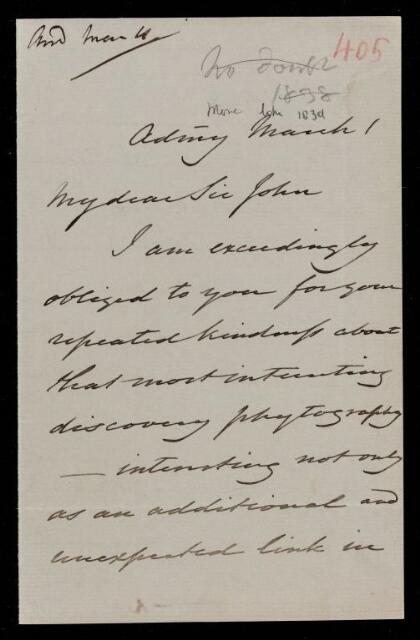 And Mar 4
405
No doubt
1838
More 1839
Admy March 1
My dear Sir John
I am exceedingly
obliged to you for your
repeated kindness about
that most interesting
discovery phytography
— interesting not only
as an additional and
unexpected link in